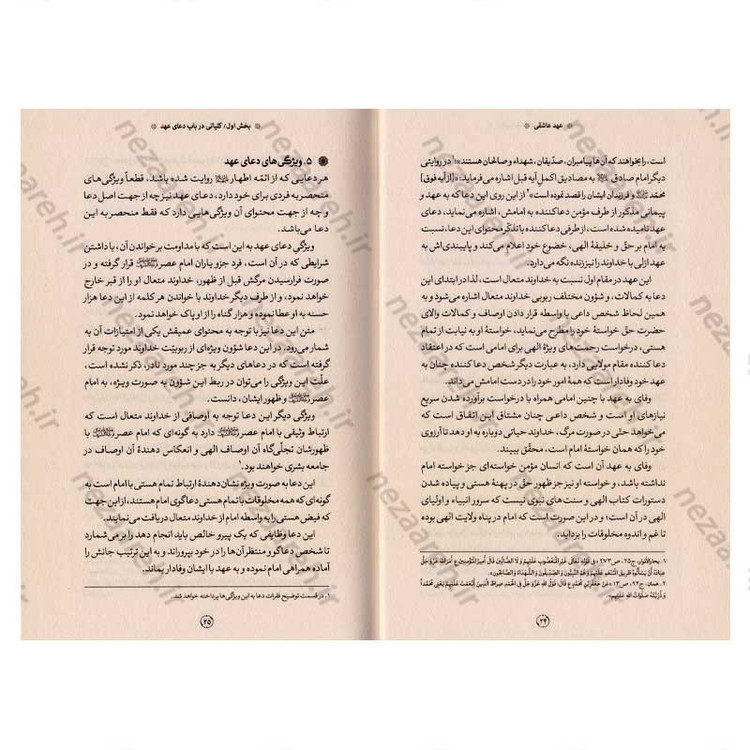 عهد عاشقی
است، را بخواهند که آن‌ها پیامبران، صدّیقان، شهداء و صالحان هستند»¹ در روایتی
دیگر امام صادق به مصادیق اکملِ آیه قبل اشاره می‌فرماید: «[از آیه فوق]
محمّد و فرزندان ایشان را قصد نموده است»² از این روی این دعا که به عهد و
پیمانی مذکور از طرف مؤمن دعاکننده به امامش، اشاره می‌نماید، دعای
عهد نامیده شده است، از طرفی دعاکننده با تذکّر محتوای این دعا، نسبت
به امام بر حق و خلیفۀ الهی، خضوع خود اعلام می‌کند و پایبندی‌اش به
عهد ازلی با خداوند را نیز زنده نگه می‌دارد.
این عهد در مقام اول نسبت به خداوند متعال است، لذا در ابتدای این
دعا به کمالات، و شؤون مختلف ربوبی خداوند متعال اشاره می‌شود و به
همین لحاظ شخص داعی با واسطه قرار دادن اوصاف و کمالات والای
حضرت حق خواستۀ خود را مطرح می‌نماید، خواستۀ او به نیابت از تمام
هستی، درخواست رحمت‌های ویژۀ الهی برای امامی است که در اعتقاد
دعا کننده مقام مولایی دارد، به عبارت دیگر شخص دعا کننده چنان به
عهد خود وفادار است که همۀ امور خود را در دست امامش می‌داند.
وفای به عهد با چنین امامی همراه با درخواست برآورده شدن سریع
نیازهای او است و شخص داعی چنان مشتاق این اتفاق است که
می‌خواهد حتّی در صورت مرگ، خداوند حیاتی دوباره به او دهد تا آرزوی
خود را که همان خواستۀ امام است، محقّق ببیند.
وفای به عهد آن است که انسان مؤمن خواسته‌ای جز خواسته امام
نداشته باشد، و خواسته او نیز جز ظهور حق در پهنۀ هستی و پیاده شدن
دستورات کتاب الهی و سنت های نبوی نیست که سرور انبیاء و اولیای
الهی در آن است؛ و در این صورت است که امام در پناه ولایت الهی بوده
تا غم و اندوه مخلوقات را بزداید.
۱. بحارالأنوار، ج۲۵، ص۲۷۳
۲. همان، ج۲۳، ص۱۳
۲۴
بخش اول/ کلیاتی در باب دعای عهد
۵. ویژگی‌های دعای عهد
هر دعایی که از ائمّه اطهار روایت شده باشد، قطعاً ویژگی‌های
منحصر به فردی برای خود دارد، دعای عهد نیز چه از جهت اصل دعا
و چه از جهت محتوای آن ویژگی‌هایی دارد که فقط منحصر به این
دعا می‌باشد.
ویژگیِ دعای عهد به این است که با مداومت برخواندن آن، با داشتن
شرایطی که در آن است، فرد جزو یاران امام عصر قرار گرفته و در
صورت فرا رسیدن مرگش قبل از ظهور، خداوند متعال او را از قبر خارج
خواهد نمود، و از طرف دیگر خداوند با خواندن هر کلمه از این دعا هزار
حسنه به او عطا نموده و هزار گناه را از او پاک خواهد نمود.
متن این دعا نیز با توجه به محتوای عمیقش یکی از امتیازات آن به
شمار می‌رود. در این دعا شؤون ویژه‌ای از ربوبیّت خداوند مورد توجه قرار
گرفته است که در دعاهای دیگر به جز چند مورد نادر، ذکر نشده است،
علّت این ویژگی را می‌توان در ربط این شؤون به صورت ویژه، به امام
عصر و ظهور ایشان، دانست.
ویژگی دیگر این دعا توجه به اوصافی از خداوند متعال است که
ارتباط وثیقی با امام عصر دارد به گونه‌ای که امام عصر با
ظهورشان تجلّی‌گاه آن اوصاف الهی و انعکاس دهندۀ آن اوصاف در
جامعه بشری خواهند بود.¹
این دعا به صورت ویژه نشان دهندۀ ارتباط تمام هستی با امام است به
گونه‌ای که همه مخلوقات با تمام هستی دعاگوی امام هستند، از این جهت
که فیض هستی را به واسطه امام از خداوند متعال دریافت می‌نمایند.
این دعا وظایفی که یک پیرو خالص باید انجام دهد را بر می‌شمارد
تا شخص دعاگو و منتظر آن‌ها را در خود بپروراند و به این ترتیب جانش را
آماده همراهی امام نموده و به عهد با ایشان وفادار بماند.
۱. در قسمت توضیح فقرات دعا به این ویژگی‌ها پرداخته خواهد شد.
۲۵
nezaareh.ir